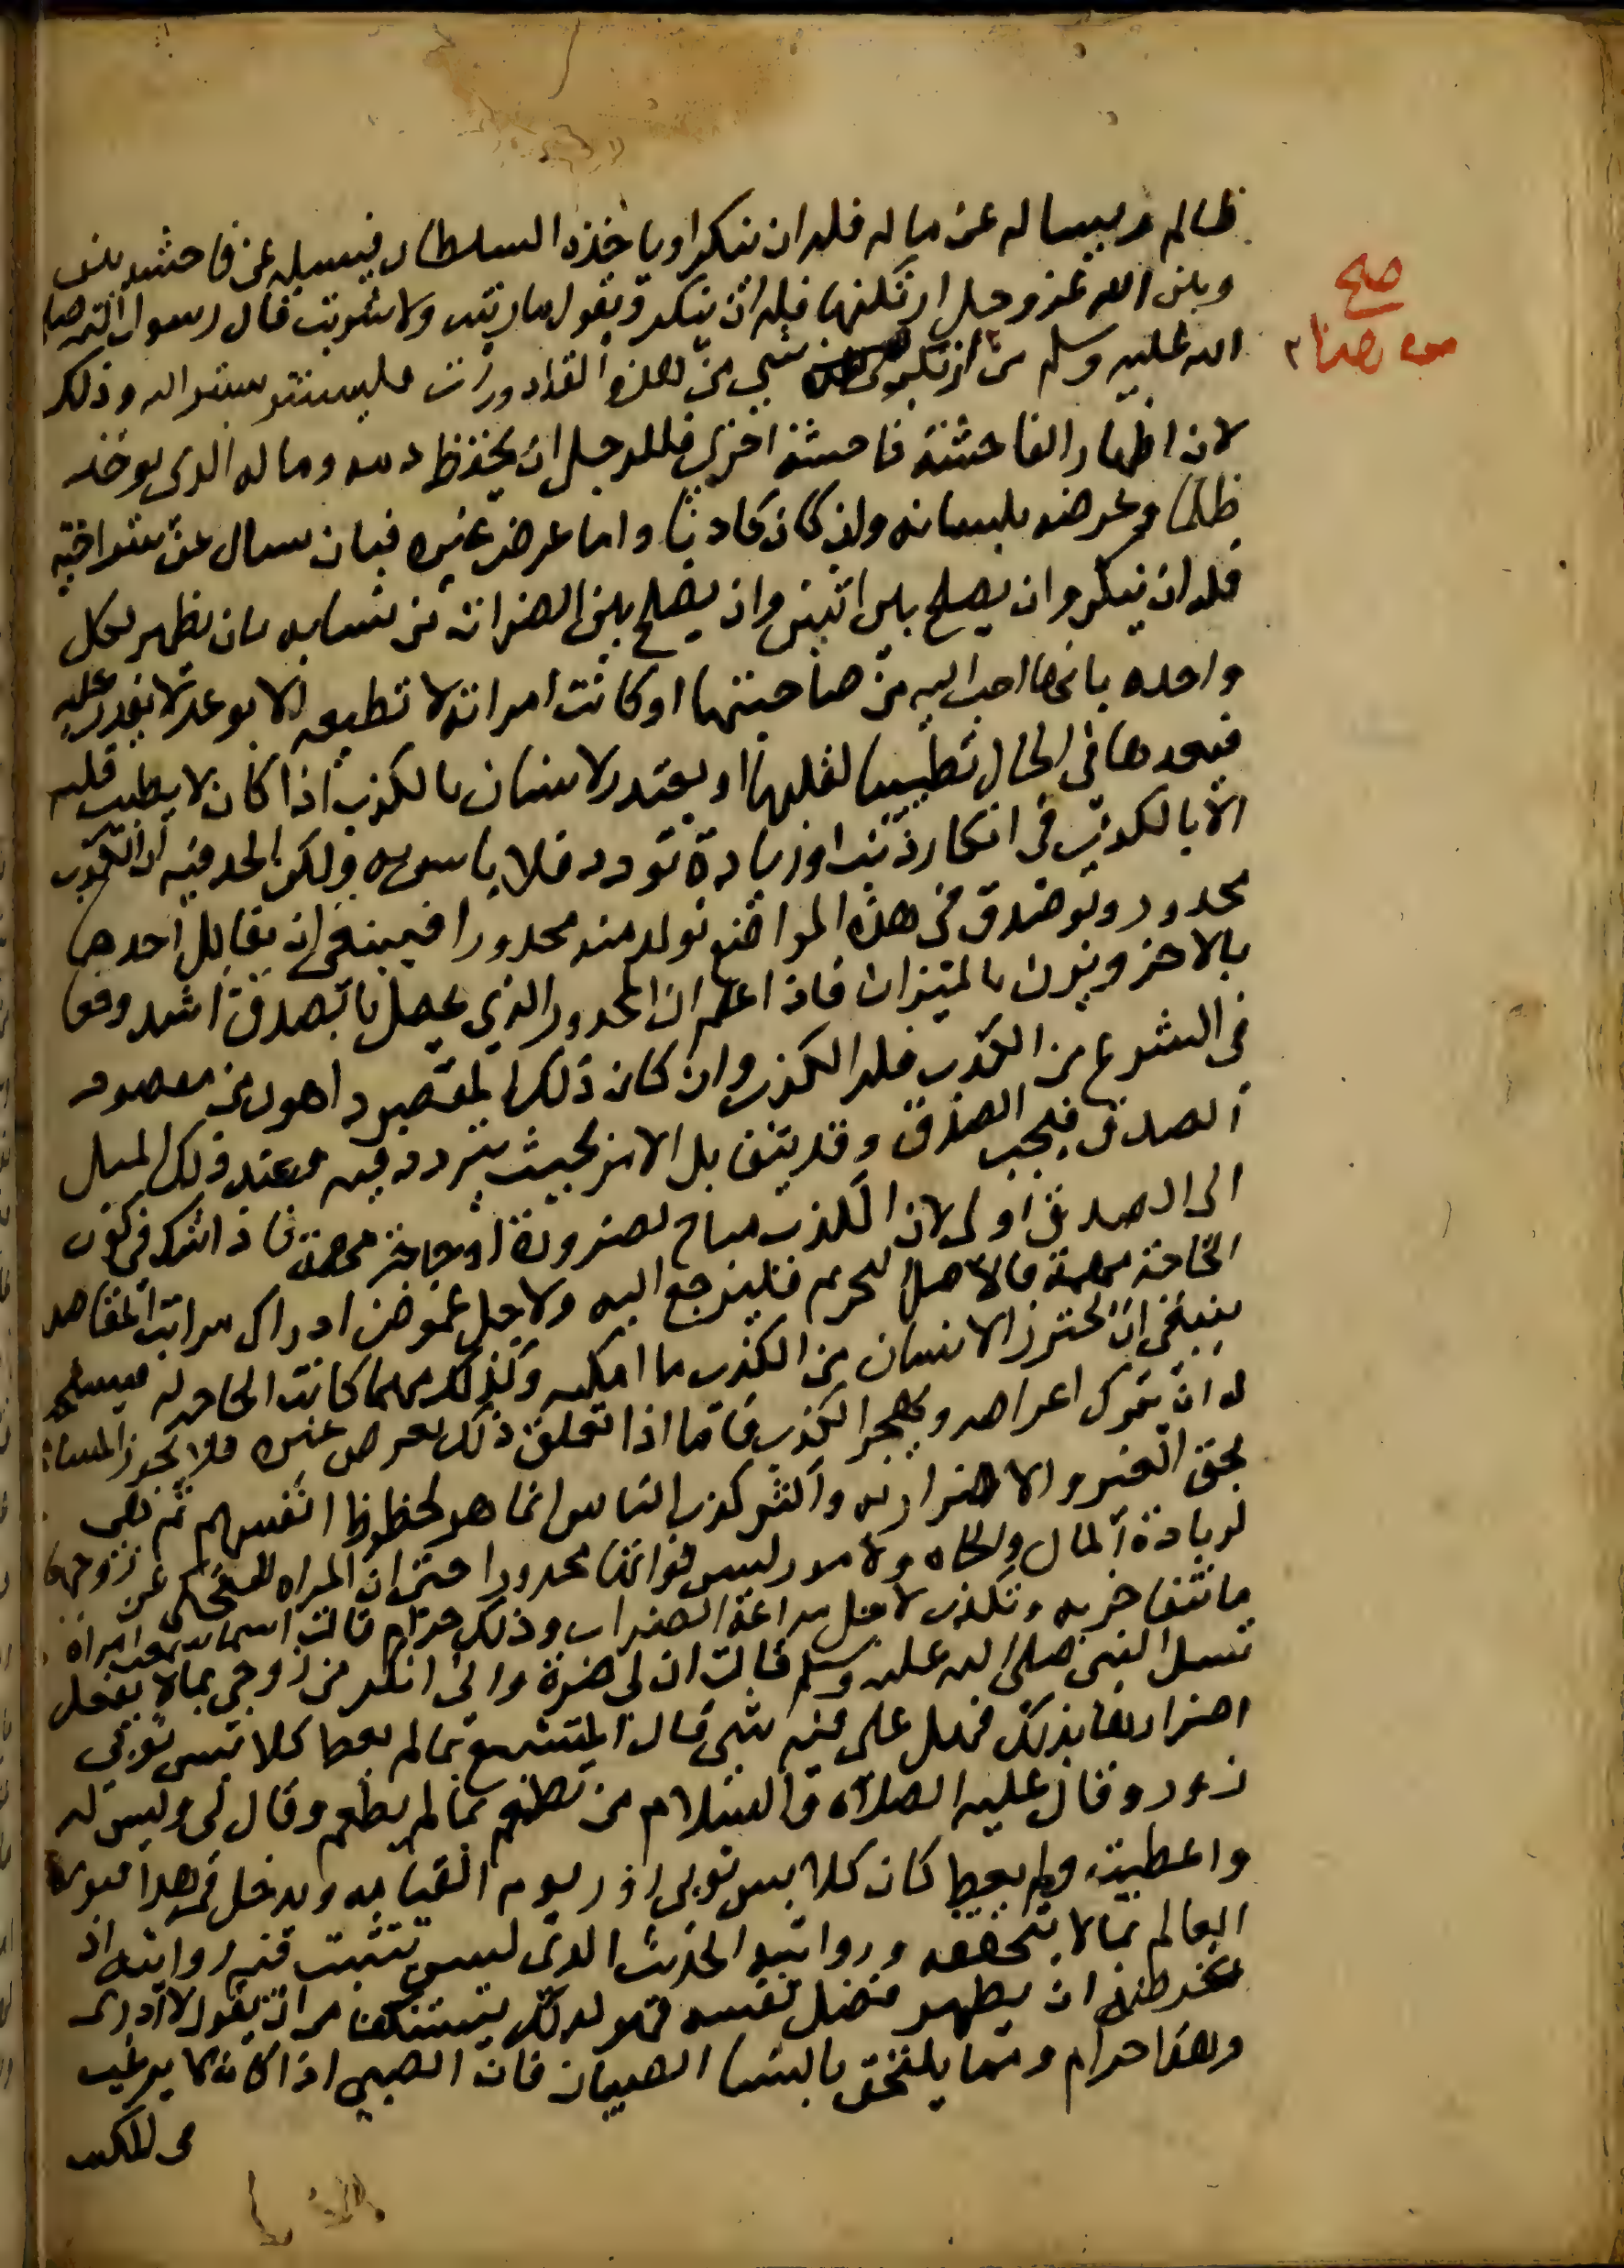 ظالم ويساله عن ماله فله ان ينكر او ياخذه السلطان فيسيله عن فاحشه بينه
وبين الله عز وجل ارتكبها فله ان ينكر ويقول ما زنيت ولا شربت قال رسول الله صلى
الله عليه وسلم من ارتكب شي من هذه القاذورات فليستتر بستر الله وذلك
لان اظهار الفاحشة فاحشة اخرى فللرجل ان يحفظ دمه وماله الذي يوخذ
ظلما وعرضه بلسانه وان كان كاذبا واما عرض غيره فبان سال عن سر اخيه
فله ان ينكر وان يصلح بين اثنين وان يصلح بين الضرات من نسايه بان يظهر لكل
واحده بانها احب اليه من صاحبتها او كانت امراته لا تطيعه الا بوعد لا يقدر عليه
فيعدها في الحال تطييبا لقلبها او يعتذر لانسان بالكذب اذا كان لا يطيب قلبه
الا بالكذب في انكار ذنب او زيادة تودد فلا باس به ولكن الحد فيه ان الكذب
محذور ولو صدق في هذه المواضع تولد منه محذورا فينبغي ان يقابل احدهما
بالاخر ويزن بالميزان فاذا اعلم ان المحذور الذي يحصل بالصدق اشد وقعا
في الشرع من الكذب فله الكذب وان كان ذلك المقصود اهون من مقصود
الصدق فيجب الصدق وقد يتقابل الامر بحيث يتردد فيه وعند ذلك الميل
الى الصدق اولى لان الكذب مباح لضرورة او حاجة مهمة فاذا شك في كون
الحاجة مهمة فالاصل التحريم فليرجع اليه ولاجل غموض ادراك مراتب المقاصد
ينبغي ان يحترز الانسان من الكذب ما امكنه وكذلك مهما كانت الحاجه له فيستحب
له ان يترك اعراضه ويهجر الكذب فاما اذا تعلق ذلك بعرض غيره فلا تجوز المسامحة
بحق الغير والاضرار به واكثر كذب الناس انما هو لحظوظ انفسهم ثم هي
لزيادة المال والجاه ولامور ليس فواتها محذورا حتى ان المراه لتحكى عن زوجها
ما تتفاخر به وتكذب لاجل مراغمة الضرات وذلك حرام قالت اسما سمعت امراة
تسل النبي صلى الله عليه وسلم قالت ان لي ضرة واني اتكثر من زوجي بما لا يفعل
اضرارها بذلك فهل علي فيه شي قال المتشبع بما لم يعط كلابس ثوبي
زور وقال عليه الصلاة والسلام من تطعم بما لم يطعم وقال لي وليس له
واعطيت ولم يعط كان كلابس ثوبي زور يوم القيامه ويدخل في هذا فتوى
العالم بما لا يتحققه وروايته الحديث الذي ليس يتثبت فيه روايته اذ
غرضه ان يظهر فضل نفسه فهو لذلك يستنكف من ان يقول لا ادرى
وهذا حرام ومما يلتحق بالنسا الصبيان فان الصبي اذا كان لا يرغب
في المكتب
صح
من هنا